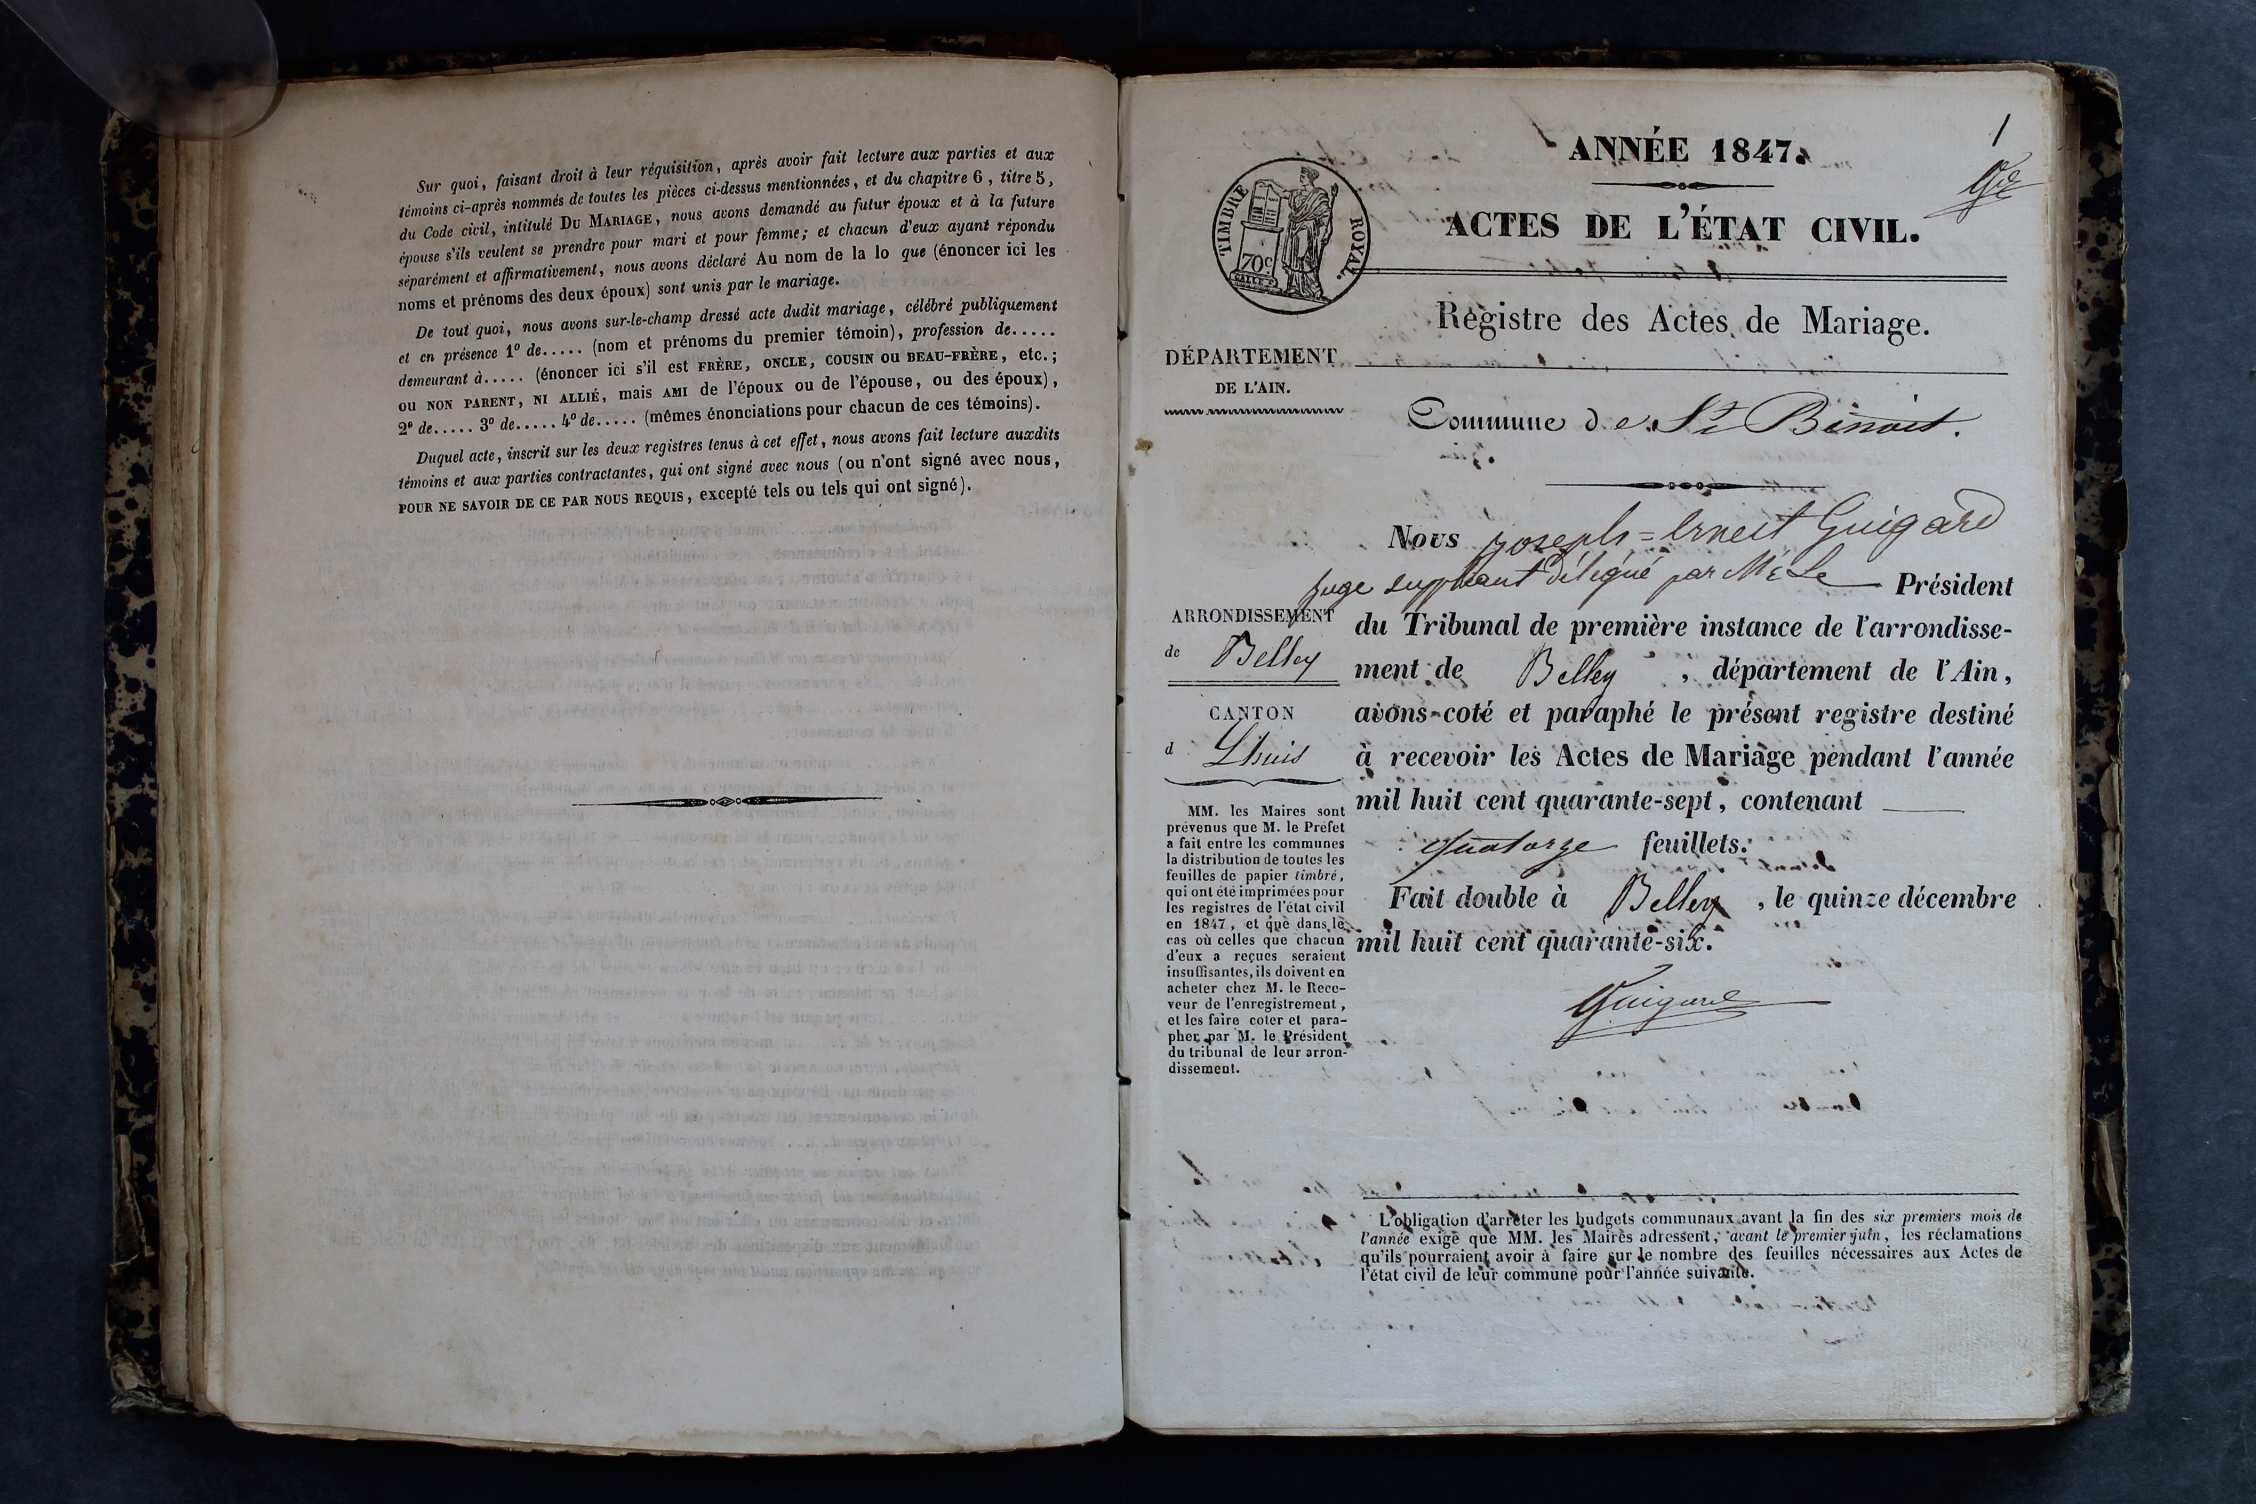 Sur quoi, faisant droit à leur réquisition, après avoir fait lecture aux parties et aux
témoins ci-après nommés de toutes les pièces ci-dessus mentionnées, et du chapitre 6, titre 5,
du Code civil, intitulé DU MARIAGE, nous avons demandé au futur époux et à la future
épouse s'ils veulent se prendre pour mari et pour femme; et chacun d'eux ayant répondu
séparément et affirmativement, nous avons déclaré Au nom de la lo que (énoncer ici les
noms et prénoms des deux époux) sont unis par le mariage.
De tout quoi, nous avons sur-le-champ dressé acte dudit mariage, célébré publiquement
et en présence 1º de..... (nom et prénoms du premier témoin), profession de.....
demeurant à..... (énoncer ici s'il est FRÈRE, ONCLE, COUSIN OU BEAU-FRÈRE, etc.;
OU NON PARENT, NI ALLIÉ, mais AMI de l'époux ou de l'épouse, ou des époux),
2º de..... 3º de..... 4º de..... (mêmes énonciations pour chacun de ces témoins).
Duquel acte, inscrit sur les deux registres tenus à cet effet, nous avons fait lecture auxdits
témoins et aux parties contractantes, qui ont signé avec nous (ou n'ont signé avec nous,
POUR NE SAVOIR DE CE PAR NOUS REQUIS, excepté tels ou tels qui ont signé).
1
ANNÉE 1847.
TIMBRE ROYAL.
70c
ACTES DE L'ÉTAT CIVIL.
Registre des Actes de Mariage.
DÉPARTEMENT
DE L'AIN.
Commune de St Benoit.
Nous Joseph=Ernest Guigard
juge suppléant délégué par Mr Le Président
ARRONDISSEMENT
de Belley
du Tribunal de première instance de l'arrondisse-
ment de Belley, département de l'Ain,
CANTON
d Lhuis
avons coté et paraphé le présent registre destiné
à recevoir les Actes de Mariage pendant l'année
mil huit cent quarante-sept, contenant
quatorze feuillets.
Fait double à Belley, le quinze décembre
mil huit cent quarante-six.
Guigard
MM. les Maires sont
prévenus que M. le Préfet
a fait entre les communes
la distribution de toutes les
feuilles de papier timbré,
qui ont été imprimées pour
les registres de l'état civil
en 1847, et que dans le
cas où celles que chacun
d'eux a reçues seraient
insuffisantes, ils doivent en
acheter chez M. le Rece-
veur de l'enregistrement,
et les faire coter et para-
pher par M. le Président
du tribunal de leur arron-
dissement.
L'obligation d'arrêter les budgets communaux avant la fin des six premiers mois de
l'année exige que MM. les Maires adressent, avant le premier juin, les réclamations
qu'ils pourraient avoir à faire sur le nombre des feuilles nécessaires aux Actes de
l'état civil de leur commune pour l'année suivante.